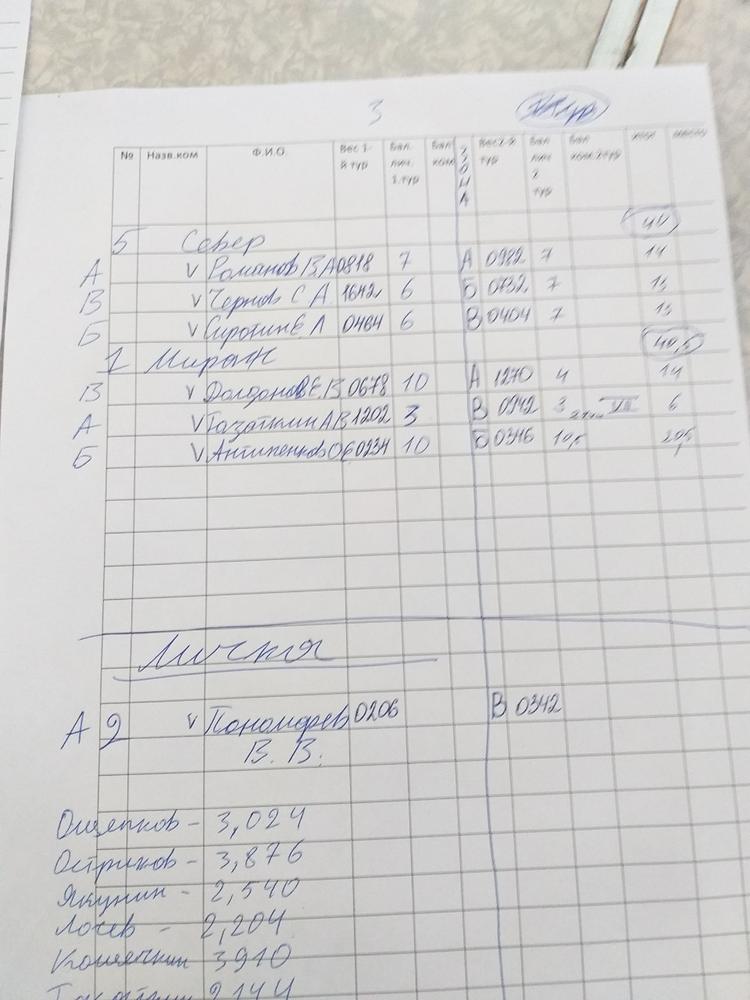 3
№ Назв.ком Ф.И.О. Вес 1-й тур Бал лич. 1.тур Бал ком ЗОНА Вес 2-й тур Бал лич 2 тур Бал ком.2тур
5 Север 44
А V Романов В А 0818 7 А 0982 7 14
В V Чернов С А 1642 6 Б 0732 7 13
Б V Сироткин Е Л 0464 6 В 0404 7 13
1 Мираж 40,5
В V Долданов Е.В 0678 10 А 1270 4 14
А V А В 1202 3 В 0942 3 VII 6
Б V Антипенков О 6 0234 10 Б 0346 10,5 20,5
Личка
А 2 V Пономарев 0206 В 0342
В. В.
Ощепков - 3,024
Остриков - 3,876
Якунин - 2,540
Лочев - 2,204
Кошечкин 3910
2144